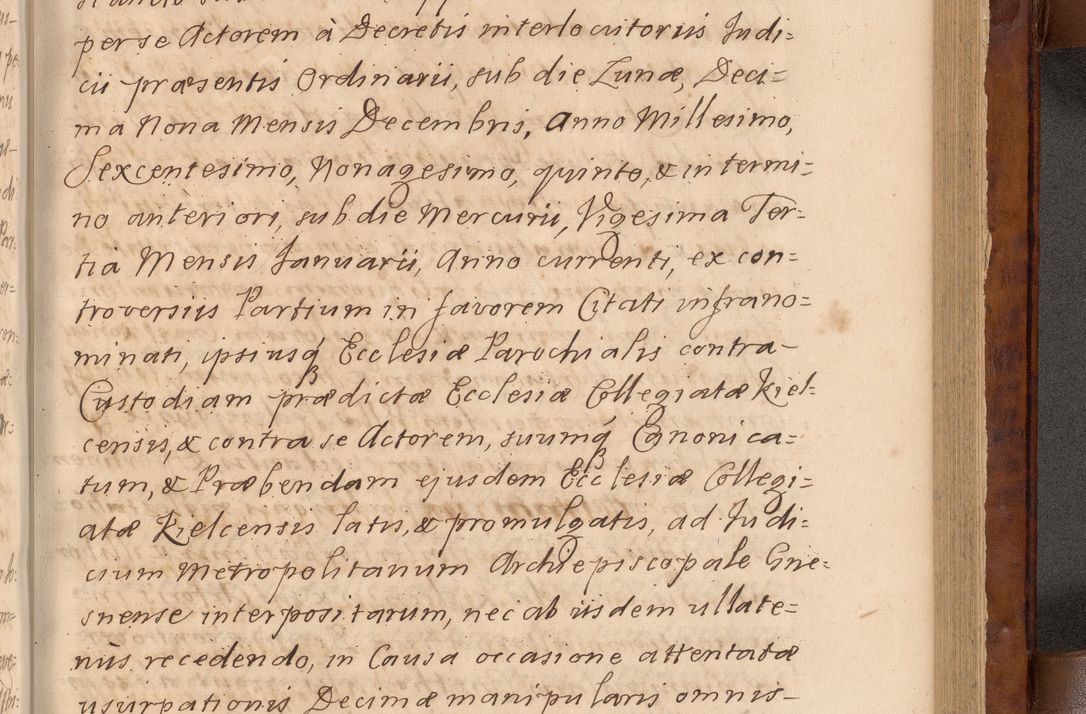 per se Actorem à Decretis interlocutoriis Judi=
cii præsentis Ordinarii, sub die Lunæ, Deci=
ma Nona Mensis Decembris, Anno Millesimo,
Sexcentesimo, Nonagesimo, quinto, & in termi=
no anteriori, sub die Mercurii, Vigesima Ter=
tia Mensis Januarii, Anno currenti, ex con=
troversiis Partium in favorem Citati infrano=
minati, ipsiusq́ Ecclesiæ Parochialis contra
Custodiam prædictæ Ecclesiæ Collegiatæ Kiel=
censis, & contra se Actorem, suumq́ Canonica=
tum, & Præbendam ejusdem Ecclesiæ Collegi=
atæ Kielcensis latis, & promulgatis, ad Judi=
cium Metropolitanum Archiepiscopale Gne=
snense interpositarum, nec ab iisdem ullate=
nùs recedendo, in Causa occasione attentatæ
usurpationis Decimæ manipularis omnis